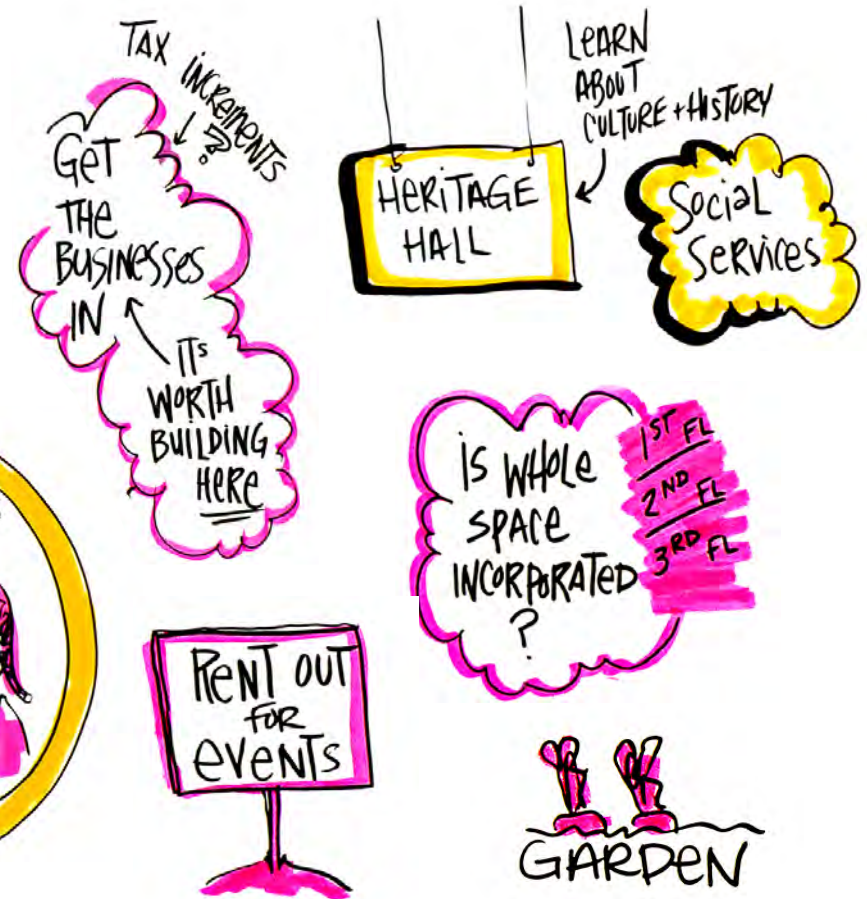 TAX
INCREMENTS
?
GET
THE
BUSINESSES
IN
ITs
WORTH
BUILDING
HERE
LEARN
ABOUT
CULTURE + HISTORY
HERITAGE
HALL
SOCIAL
SERVICES
IS WHOLE
SPACE
INCORPORATED
?
1ST FL
2ND FL
3RD FL
RENT OUT
FOR
EVENTS
GARDEN